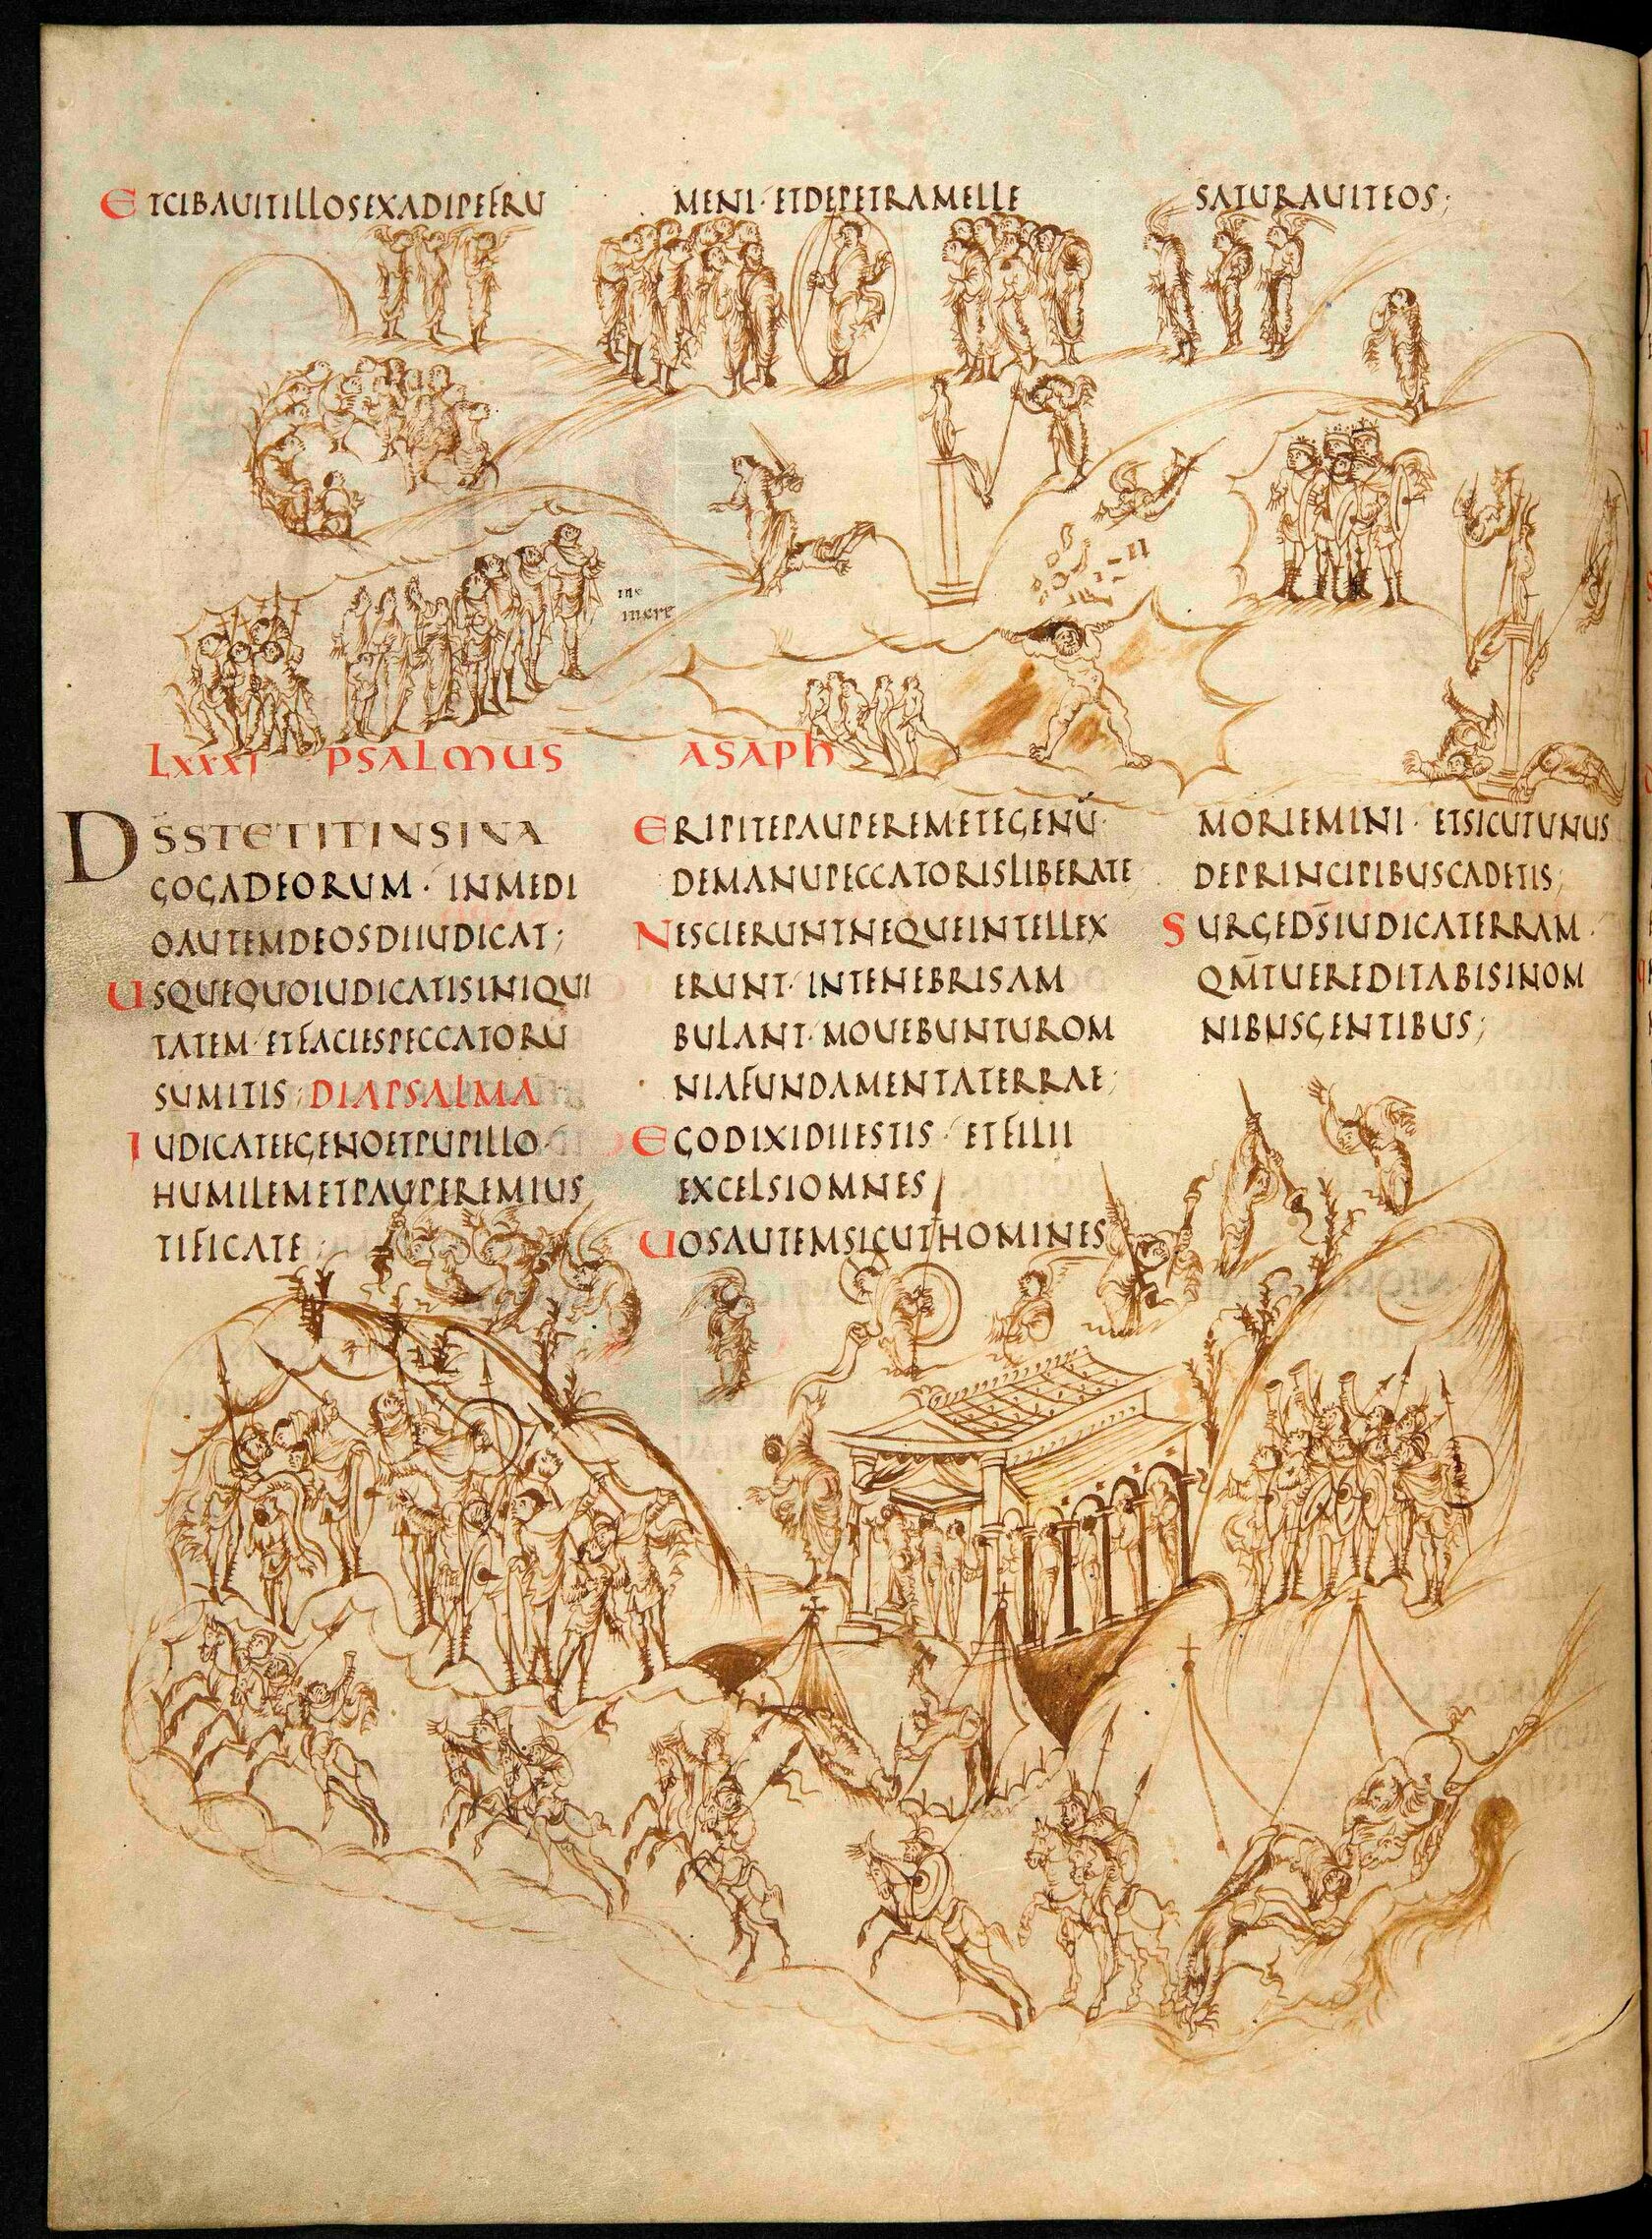 ETCIBAUITILLOSEXADIPEFRU
MENI· ETDEPETRAMELLE
SATURAUITEOS;
LXXXI PSALMUS ASAPH
DSSTETITINSINA
GOGADEORUM· INMEDI
OAUTEMDEOSDIIUDICAT;
USQUEQUOIUDICATISINIQUI
TATEM· ETFACIESPECCATORU
SUMITIS; DIAPSALMA
IUDICATEEGENOETPUPILLO·
HUMILEMETPAUPEREMIUS
TIFICATE;
ERIPITEPAUPEREMETEGENU·
DEMANUPECCATORISLIBERATE
NESCIERUNTNEQUEINTELLEX
ERUNT· INTENEBRISAM
BULANT· MOUEBUNTUROM
NIAFUNDAMENTATERRAE;
EGODIXIDIIESTIS· ETFILII
EXCELSIOMNES
UOSAUTEMSICUTHOMINES
MORIEMINI· ETSICUTUNUS
DEPRINCIPIBUSCADETIS;
SURGEDS̄IUDICATERRAM·
QM̄TUEREDITABISINOM
NIBUSGENTIBUS;